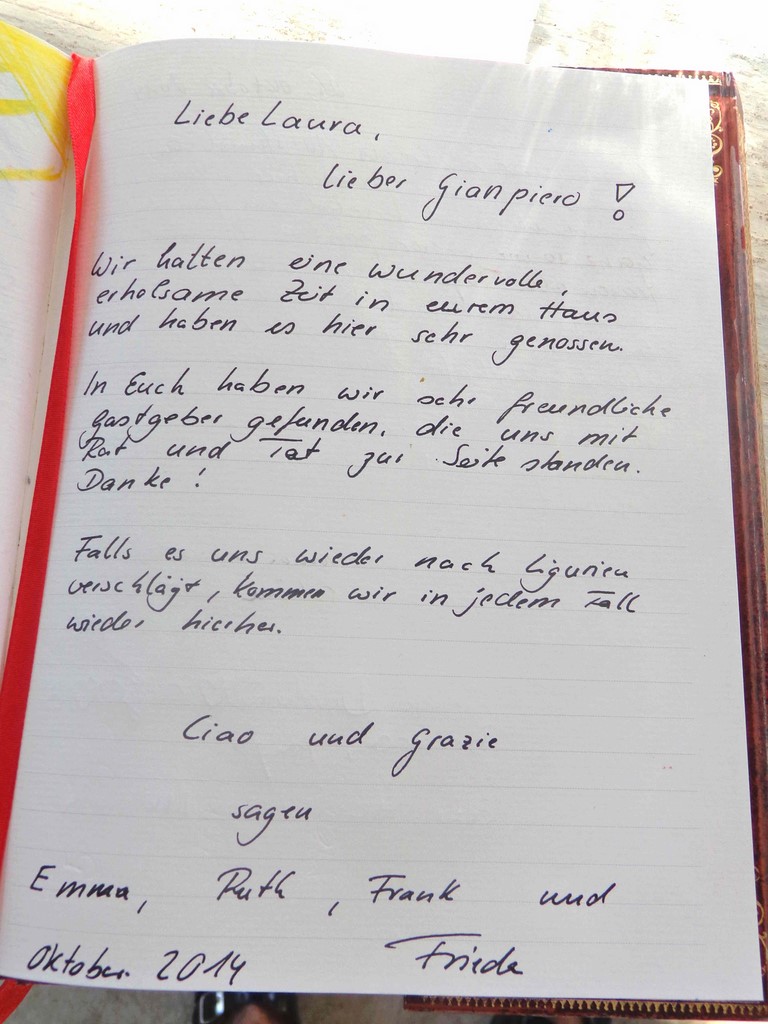 Liebe Laura,
lieber Gianpiero!
Wir hatten eine wundervolle,
erholsame Zeit in eurem Haus
und haben es hier sehr genossen.
In Euch haben wir sehr freundliche
Gastgeber gefunden, die uns mit
Rat und Tat zur Seite standen.
Danke!
Falls es uns wieder nach Ligurien
verschlägt, kommen wir in jedem Fall
wieder hierher.
Ciao und Grazie
sagen
Emma, Ruth, Frank und
Oktober 2014 Frieda